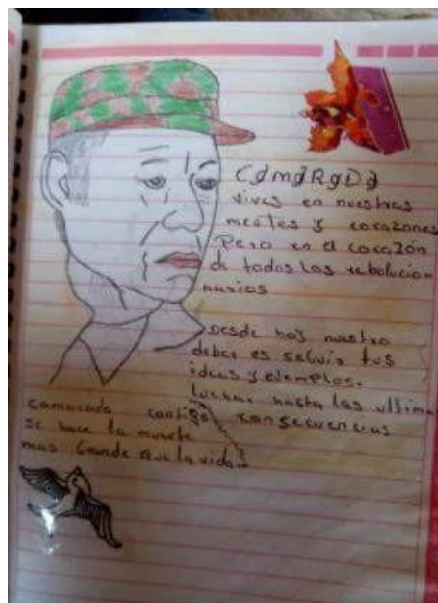 CamaRaDa
vives en nuestras
mentes y corazones
Pero en el corazón
de todos los rebolucion
narios
Desde hoy nuestro
deber es seguir tus
ideas y ejemplos.
luchar hasta las ultima
consecuencias
camarada contigo
se hace la muerte
mas Grande que la vida